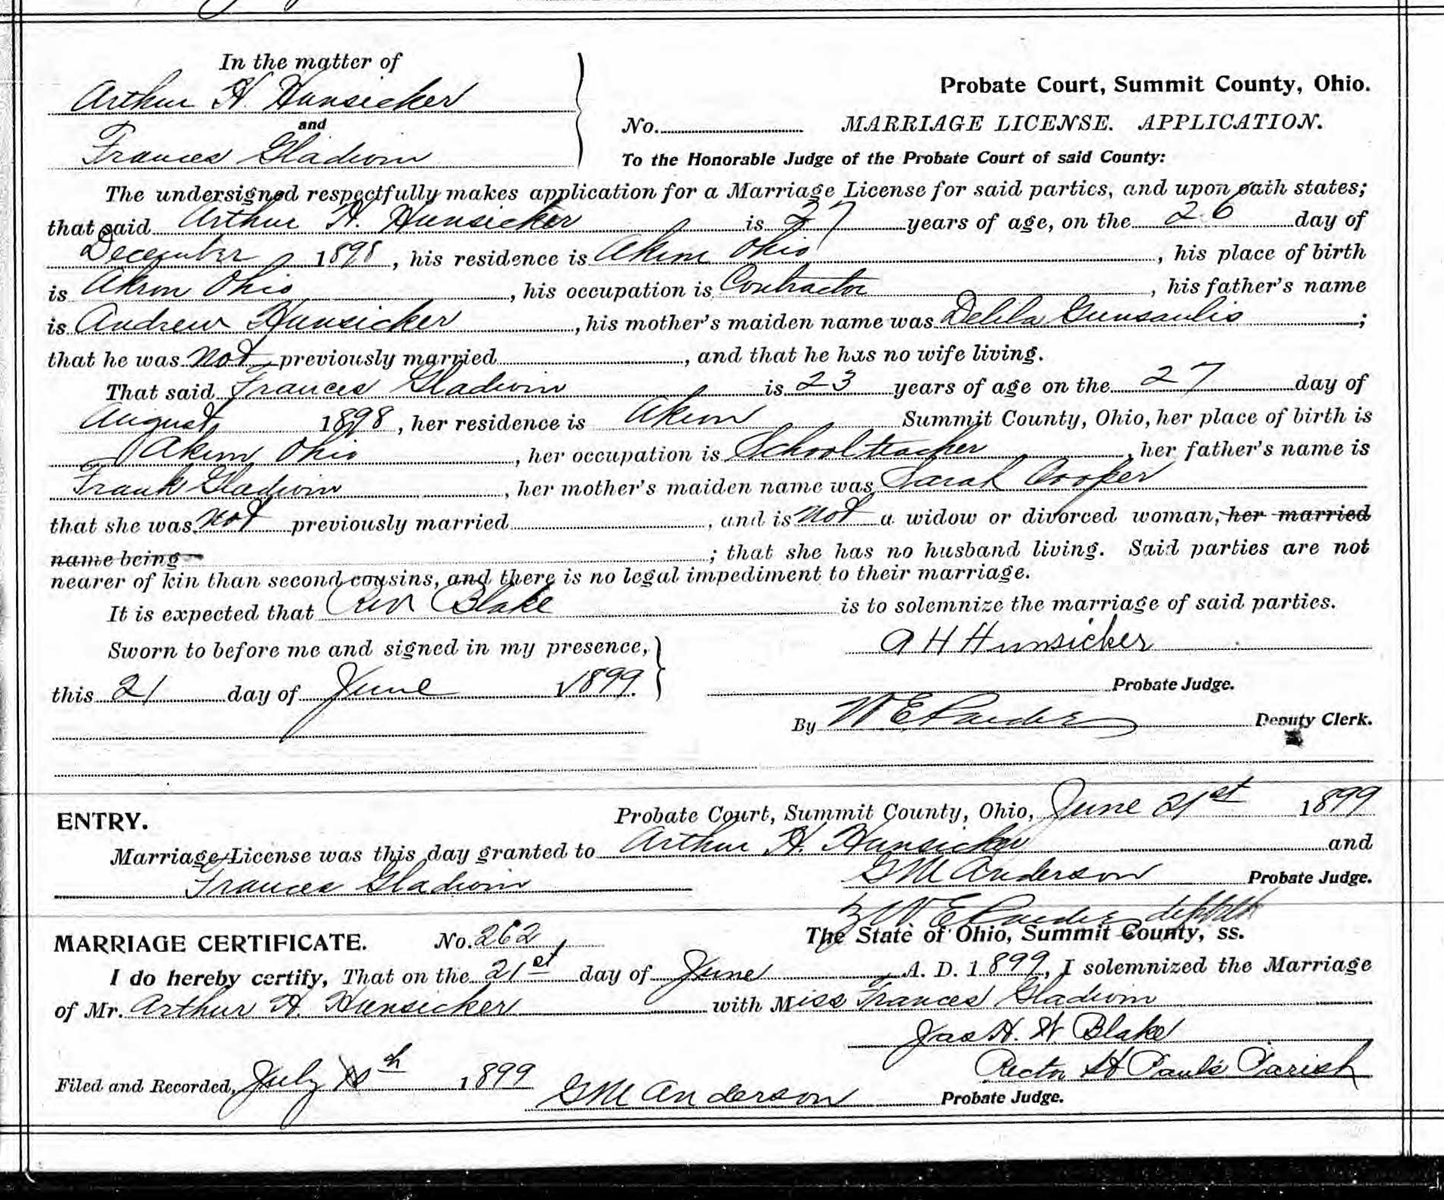 In the matter of
Arthur H. Hunsicker
and
Frances Gladwin
Probate Court, Summit County, Ohio.
No. MARRIAGE LICENSE. APPLICATION.
To the Honorable Judge of the Probate Court of said County:
The undersigned respectfully makes application for a Marriage License for said parties, and upon oath states;
that said Arthur H. Hunsicker is 27 years of age, on the 26 day of
December 1898, his residence is Akron Ohio, his place of birth
is Akron Ohio, his occupation is Contractor, his father's name
is Andrew Hunsicker, his mother's maiden name was Delila Gunsaulis;
that he was not previously married, and that he has no wife living.
That said Frances Gladwin is 23 years of age on the 27 day of
August 1898, her residence is Akron Summit County, Ohio, her place of birth is
Akron Ohio, her occupation is School teacher, her father's name is
Frank Gladwin, her mother's maiden name was Sarah Cooper
that she was not previously married, and is not a widow or divorced woman, her married
name being; that she has no husband living. Said parties are not
nearer of kin than second cousins, and there is no legal impediment to their marriage.
It is expected that Rev Blake is to solemnize the marriage of said parties.
Sworn to before me and signed in my presence,
A H Hunsicker
this 21 day of June 1899.
Probate Judge.
By W E Deputy Clerk.
ENTRY.
Probate Court, Summit County, Ohio, June 21st 1899
Marriage License was this day granted to Arthur H. Hunsicker and
Frances Gladwin
G M Anderson Probate Judge.
W E
MARRIAGE CERTIFICATE. No. 262
The State of Ohio, Summit County, ss.
I do hereby certify, That on the 21st day of June A. D. 1899, I solemnized the Marriage
of Mr. Arthur H. Hunsicker with Miss Frances Gladwin
Jas H. W Blake
Rector St Paul's Parish
Filed and Recorded, July 1899
G M Anderson
Probate Judge.